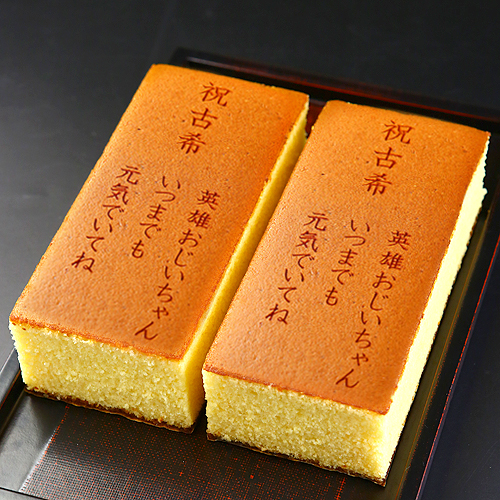 祝古希
英雄おじいちゃん
いつまでも
元気でいてね
祝古希
英雄おじいちゃん
いつまでも
元気でいてね